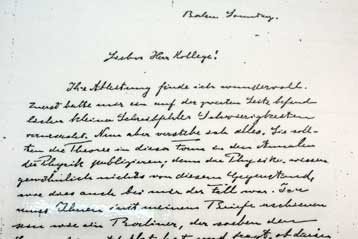 Sonntag.
Lieber Herr Kollege!
Ihre Ableitung finde ich wundervoll.
Zuerst hatte mir ein auf der zweiten Seite befind-
licher kleiner Schreibfehler Schwierigkeiten
verursacht. Nun aber verstehe ich alles. Sie soll-
ten die Theorie in dieser Form in den Annalen
der Physik publizieren; denn die Physiker wissen
gewöhnlich nichts von diesem Gegenstand,
wie dies auch bei mir der Fall war.
muss Ihnen mit meinem Briefe erschienen
sein wie ein Berliner, der soeben den